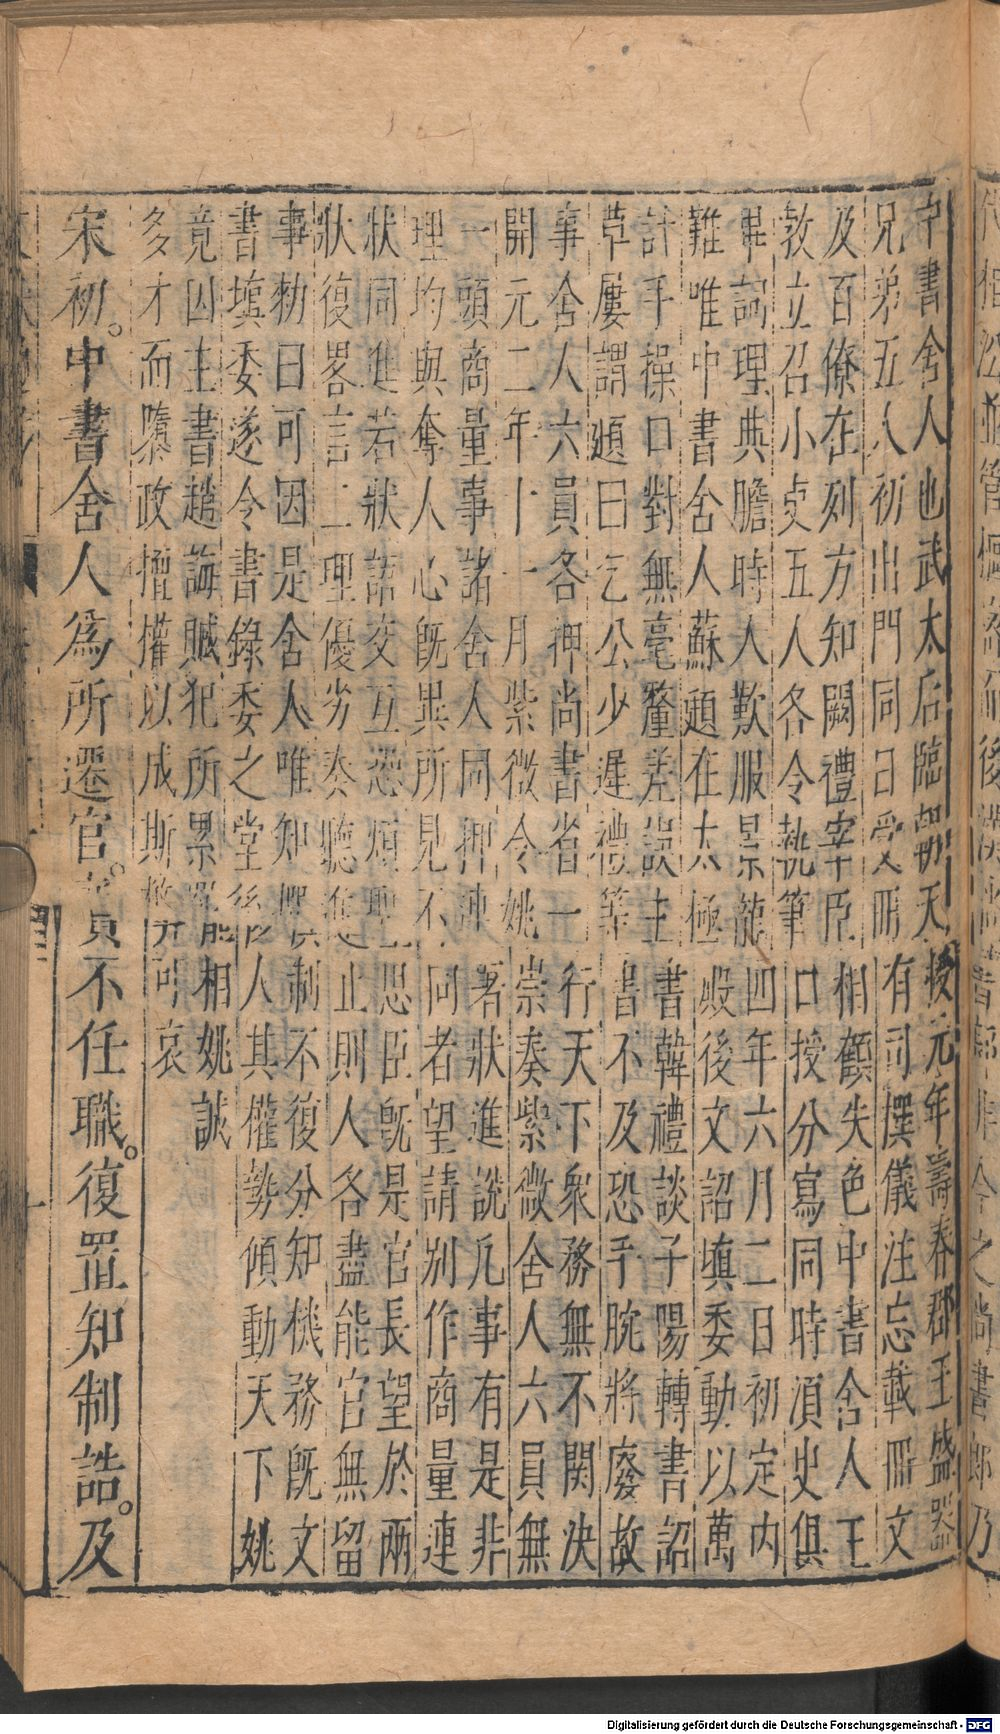 中書舍人也武太后臨朝天授元年壽春郡王盛器
兄弟五人初出閤同日受冊有司撰儀注忘載冊文
及百僚在列方知闕禮宰臣相顧失色中書舍人王
教立召小吏五人各令執筆口授分寫同時湏史俱
畢詞理典贍時人歎服景龍四年六月二日初定内
難唯中書舍人蘇頲在太極殿後文詔填委動以萬
計手操口對無毫釐差誤主書韓禮談子陽轉書詔
草屢謂頲曰乞公少遲禮等書不及恐手腕將廢故
事舍人六員各押尚書省一行天下衆務無不関決
開元二年十一月紫微令姚崇奏紫微舍人六員無
一頭商量事諸舍人同押連署狀進說凡事有是非
理均與奪人心旣異所見不同者望請别作商量連
狀同進若狀語交互恐煩聖思臣旣是官長望於兩
狀復畧言二理優劣奏聽進止則人各盡能官無留
事勑曰可因是舍人唯知撰制不復分知機務旣文
書填委遂令書錄委之堂後人其權勢傾動天下姚
竟因主書趙誨贓犯所累罷相姚誠
多才而隳政擅權以成斯弊可哀
宋初。中書舍人爲所遷官。實不任職。復置知制誥。及
後
今之尚書郎乃
Digitalisierung gefördert durch die Deutsche Forschungsgemeinschaft - DFG